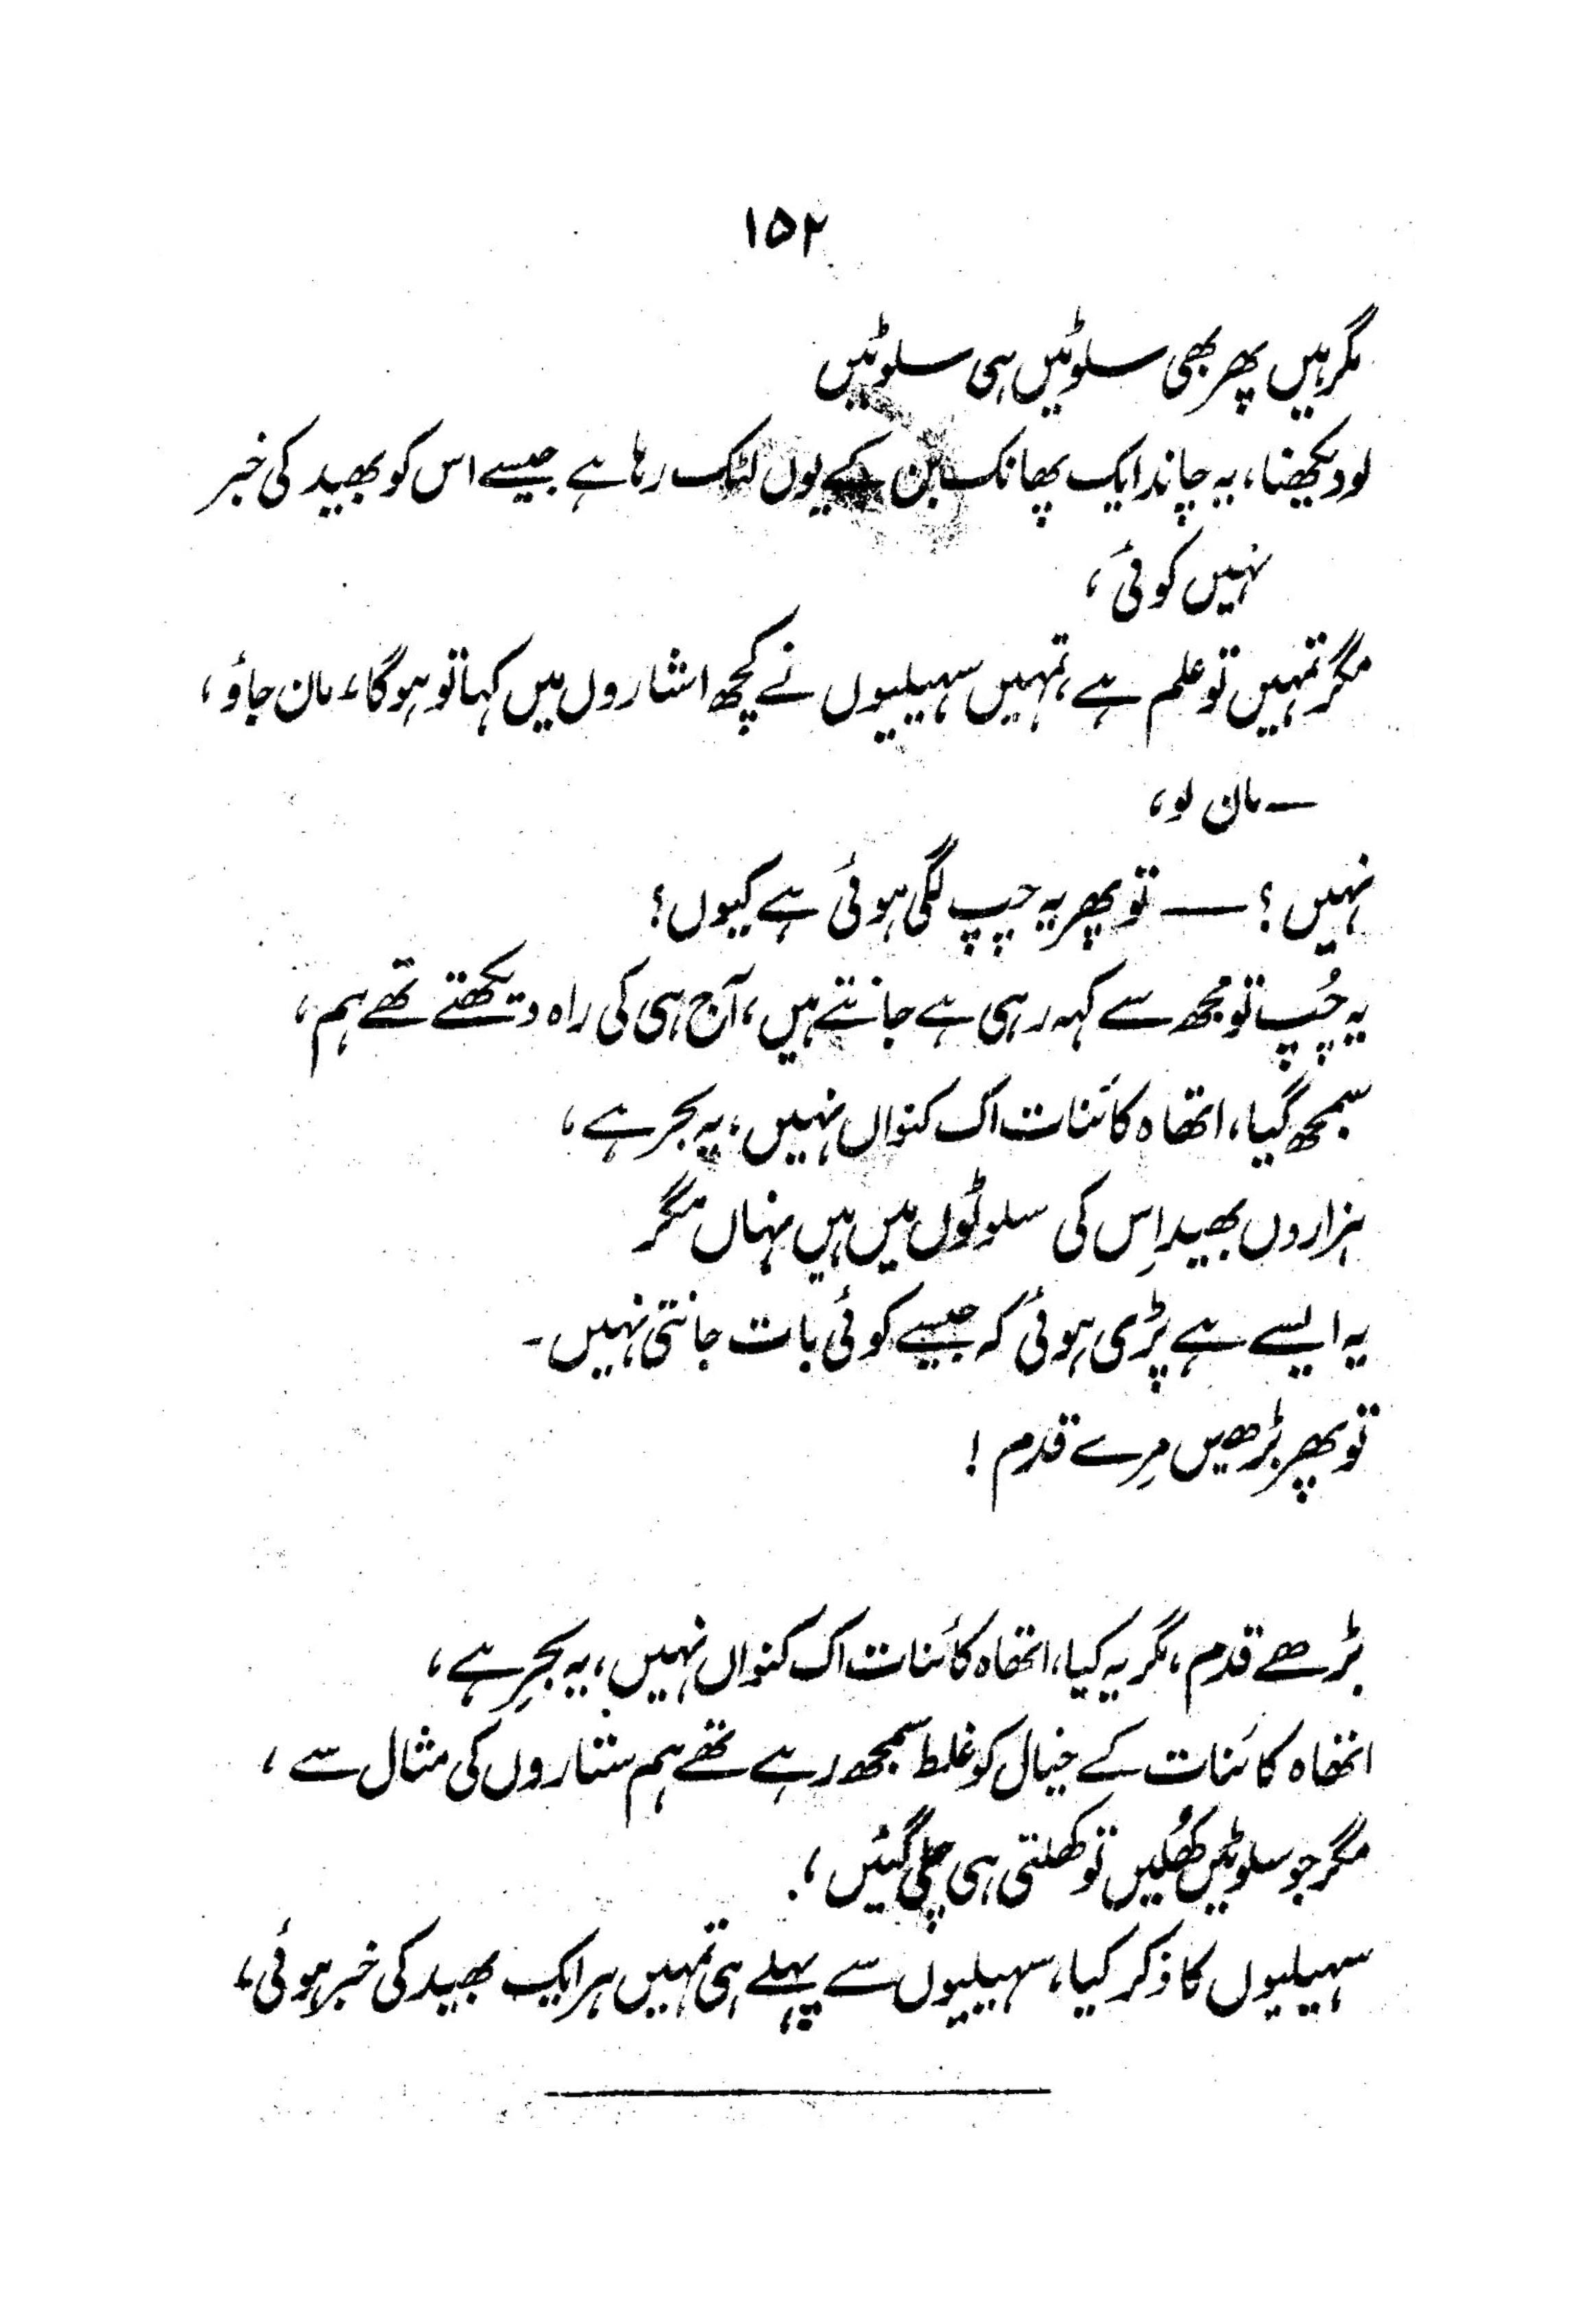 ۱۵۲
مگر ہیں پھر بھی سلوٹیں ہی سلوٹیں
لو دیکھنا، یہ چاند ایک پھانک بن کے یوں لٹک رہا ہے جیسے اس کو بھید کی خبر
نہیں کوئی،
مگر تمہیں تو علم ہے، تمہیں سہیلیوں نے کچھ اشاروں میں کہا تو ہوگا، مان جاؤ،
— مان لو،
نہیں؟ — تو پھر یہ چپ لگی ہوئی ہے کیوں؟
یہ چُپ تو مجھ سے کہہ رہی ہے جانتے ہیں، آج ہی کی راہ دیکھتے تھے ہم،
سمجھ گیا، اتھاہ کائنات اک کنواں نہیں، یہ بحر ہے،
ہزاروں بھید اِس کی سلوٹوں میں ہیں نہاں مگر
یہ ایسے ہے پڑی ہوئی کہ جیسے کوئی بات جانتی نہیں۔
تو پھر بڑھیں مِرے قدم!
بڑھے قدم، مگر یہ کیا، اتھاہ کائنات اک کنواں نہیں، یہ بحرِ ہے،
اتھاہ کائنات کے خیال کو غلط سمجھ رہے تھے ہم ستاروں کی مثال سے،
مگر جو سلوٹیں کھُلیں تو کھلتی ہی چلی گئیں،
سہیلیوں کا ذکر کیا، سہیلیوں سے پہلے ہی تمہیں ہر ایک بھید کی خبر ہوئی،